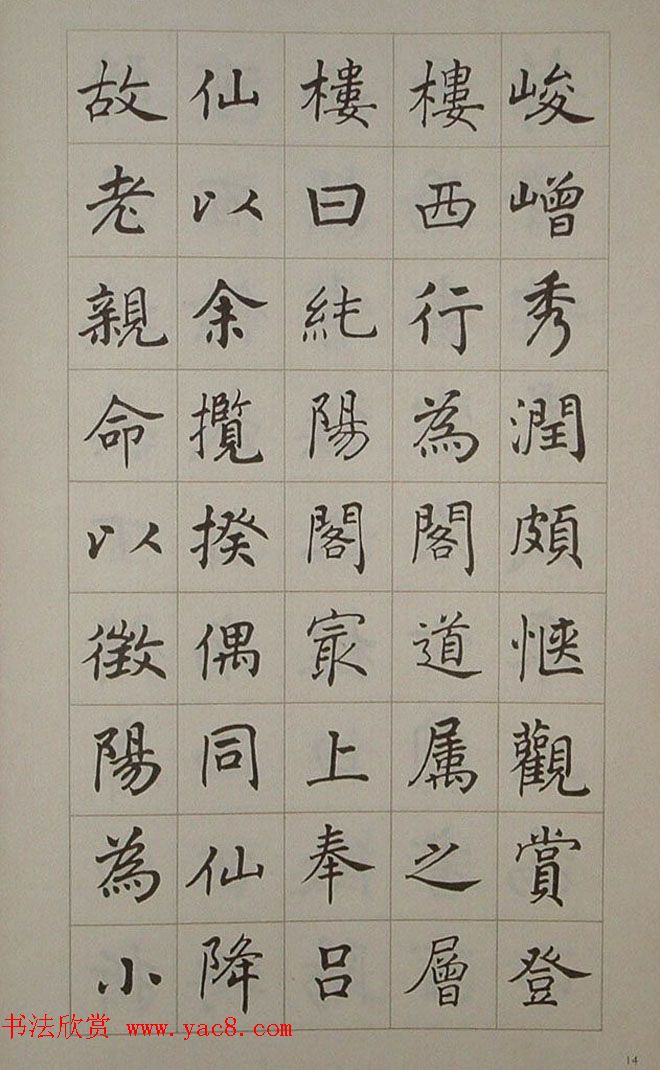 峻嶒秀潤頗惬觀賞登
樓西行為閣道属之層
樓曰純陽閣㝡上奉吕
仙以余攬揆偶同仙降
故老親命以徵陽為小
书法欣赏 www.yac8.com
14